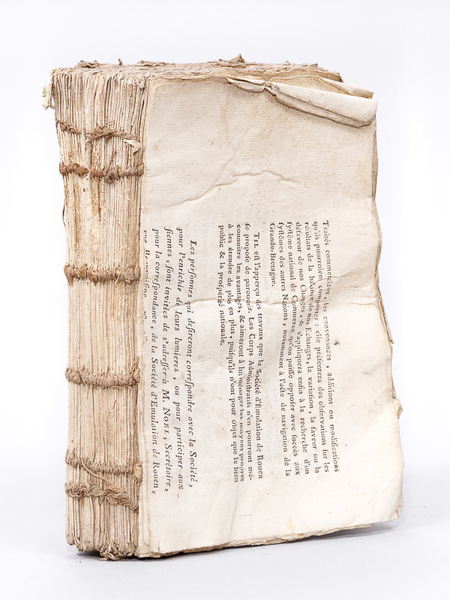 4
Traités commerciaux, les convenances, additions ou modifications
qu'ils pourroient comporter: elle présentera des observations sur les
résultats de la balance de nos Echanges, la variation, la faveur ou la
défaveur de nos Changes, & s'appliquera enfin à la recherche d'un
système national de Commerce qu'on puisse opposer avec succès aux
systêmes des autres Nations, notamment à l'acte de navigation de la
Grande-Bretagne.
TEL est l'apperçu des travaux que la Société d'Émulation de Rouen
se propose de parcourir. Les Corps Administratifs n'en pourront mé-
connoître les avantages, & aimeront à lui ménager les moyens propres
à les étendre de plus en plus, puisqu'ils n'ont pour objet que le bien
public & la prospérité nationale.
Les personnes qui desireront correspondre avec la Société,
pour l'enrichir de leurs lumieres, ou pour participer aux
siennes, sont invitées de s'adresser à M. NOEL, Secrétaire,
pour la correspondance, de la Société d'Emulation de Rouen,